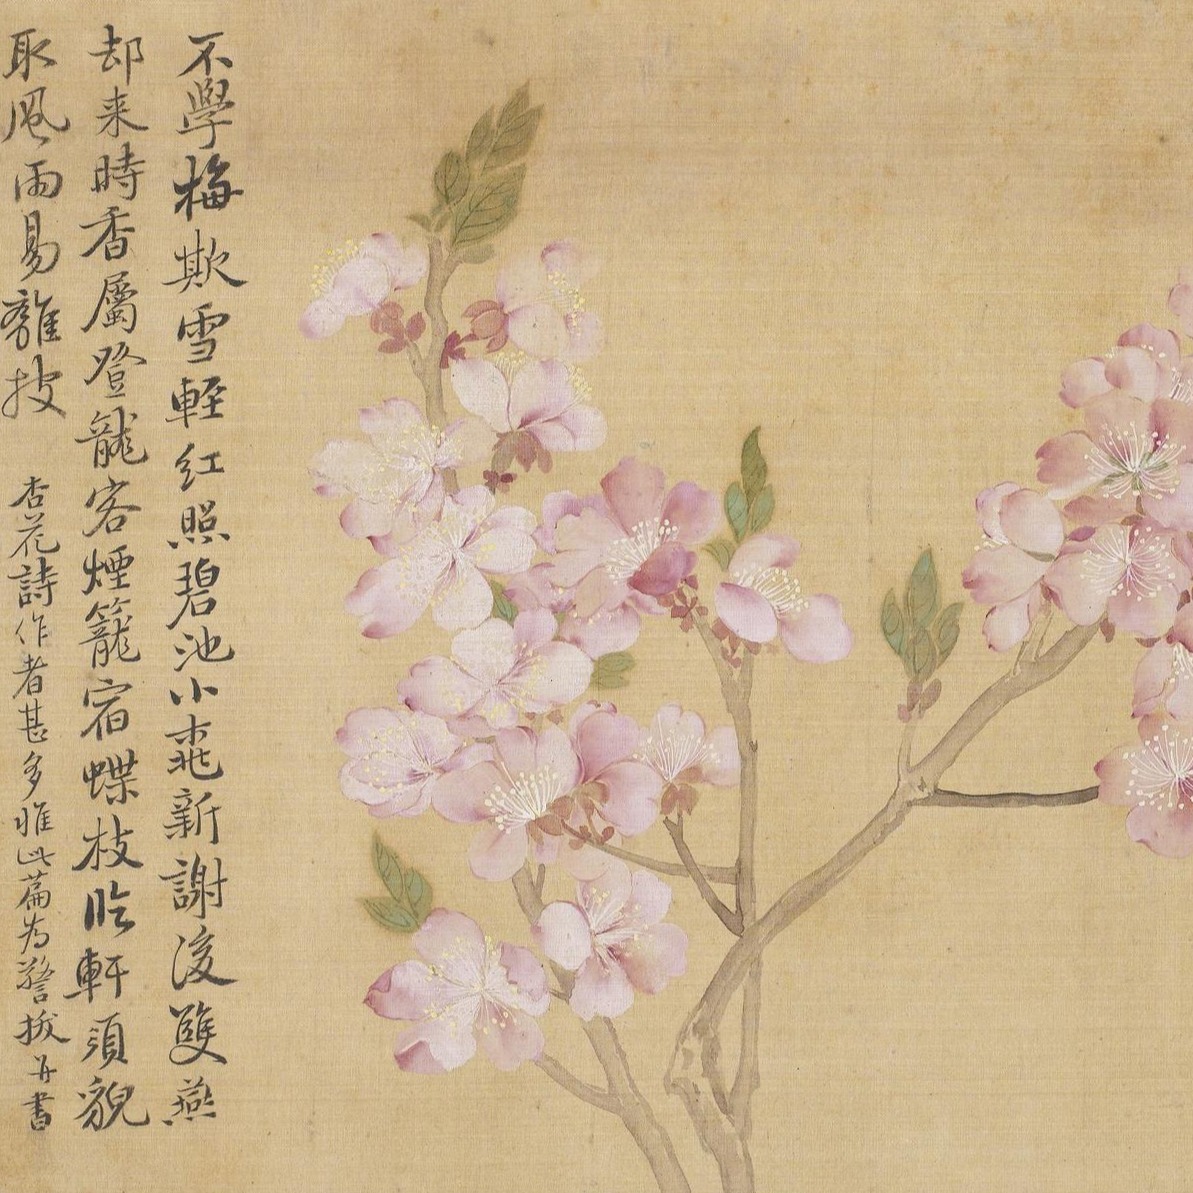 不學梅欺雪輕紅照碧池小桃新謝後雙燕
却来時香屬登龍客煙籠宿蝶枝臨軒須貌
取風雨易離披
杏花詩作者甚多惟此篇為警拔並書